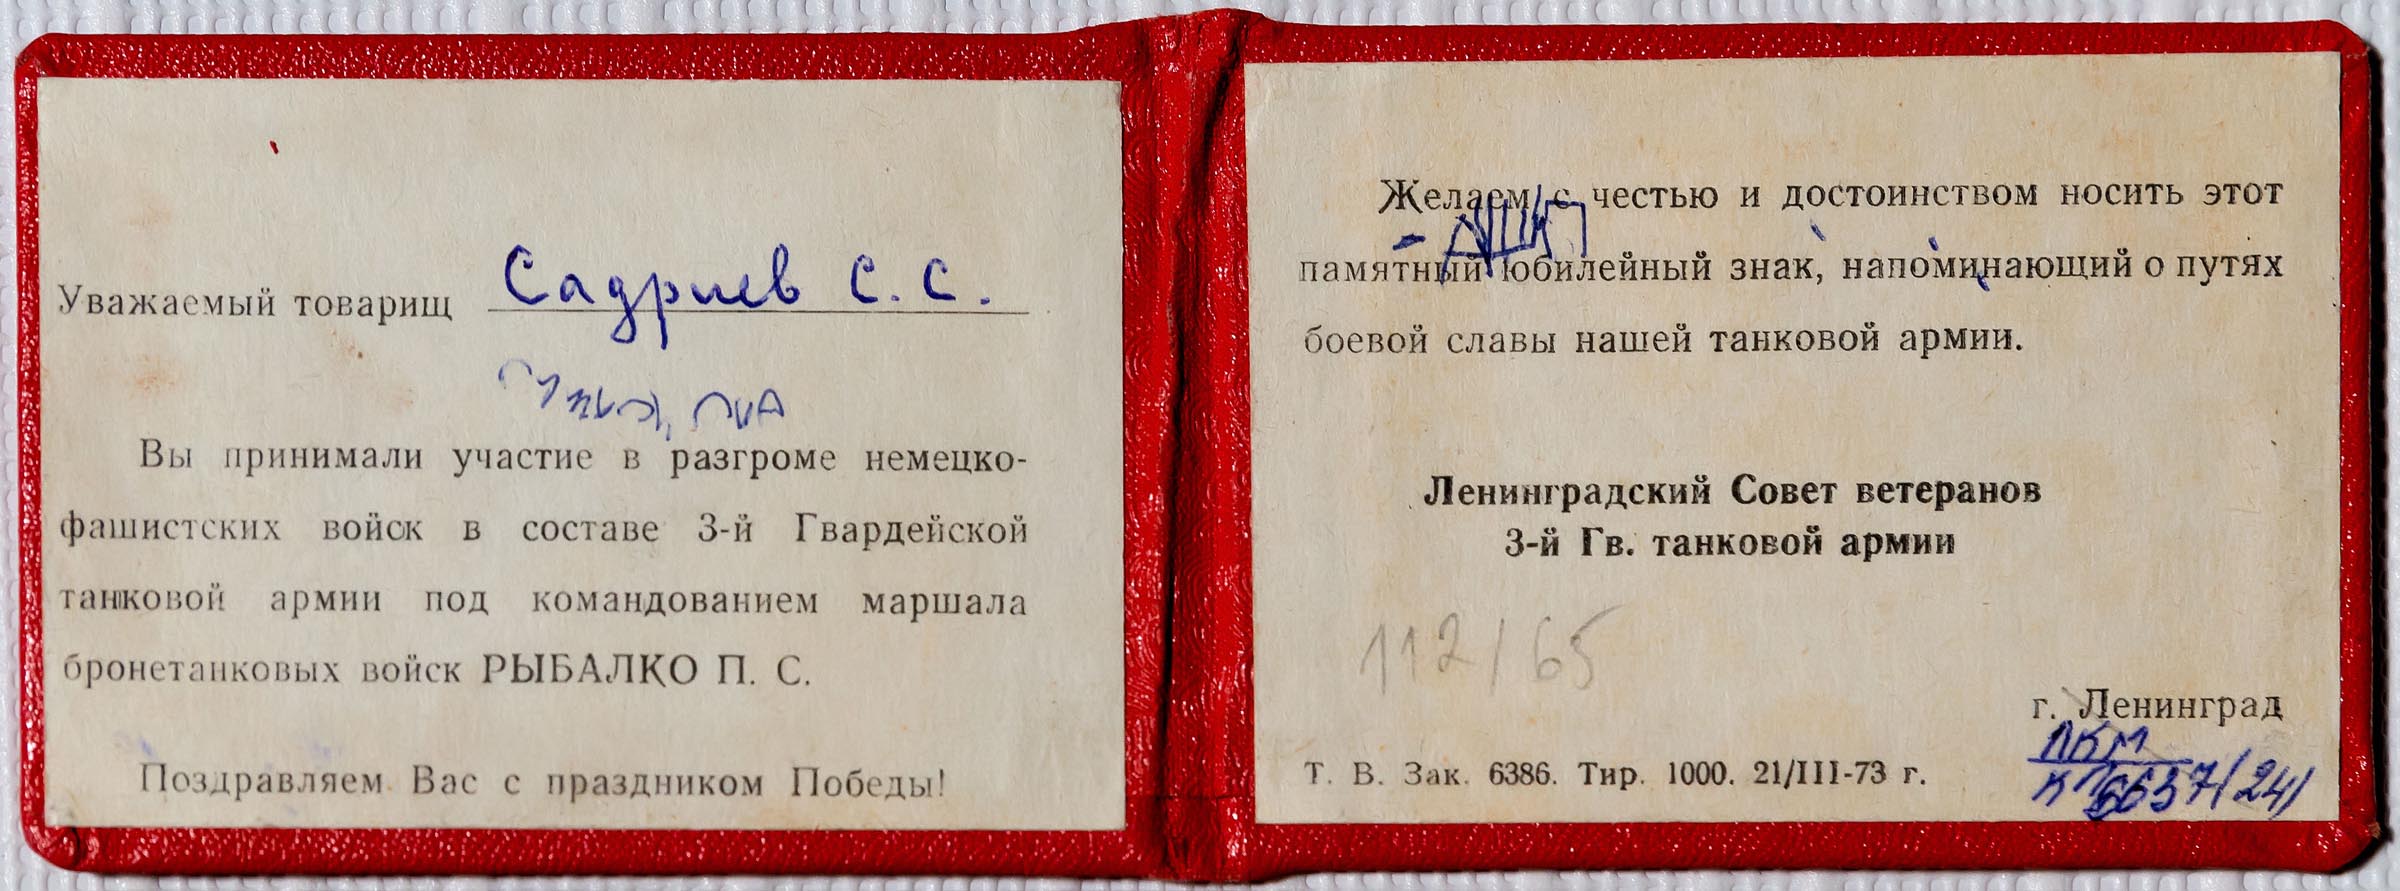 Уважаемый товарищ Садриев С. С.
Вы принимали участие в разгроме немецко-
фашистских войск в составе 3-й Гвардейской
танковой армии под командованием маршала
бронетанковых войск РЫБАЛКО П. С.
Поздравляем Вас с праздником Победы!
Желаем с честью и достоинством носить этот
памятный юбилейный знак, напоминающий о путях
боевой славы нашей танковой армии.
Ленинградский Совет ветеранов
3-й Гв. танковой армии
112/65
г. Ленинград
Т. В. Зак. 6386. Тир. 1000. 21/III-73 г.